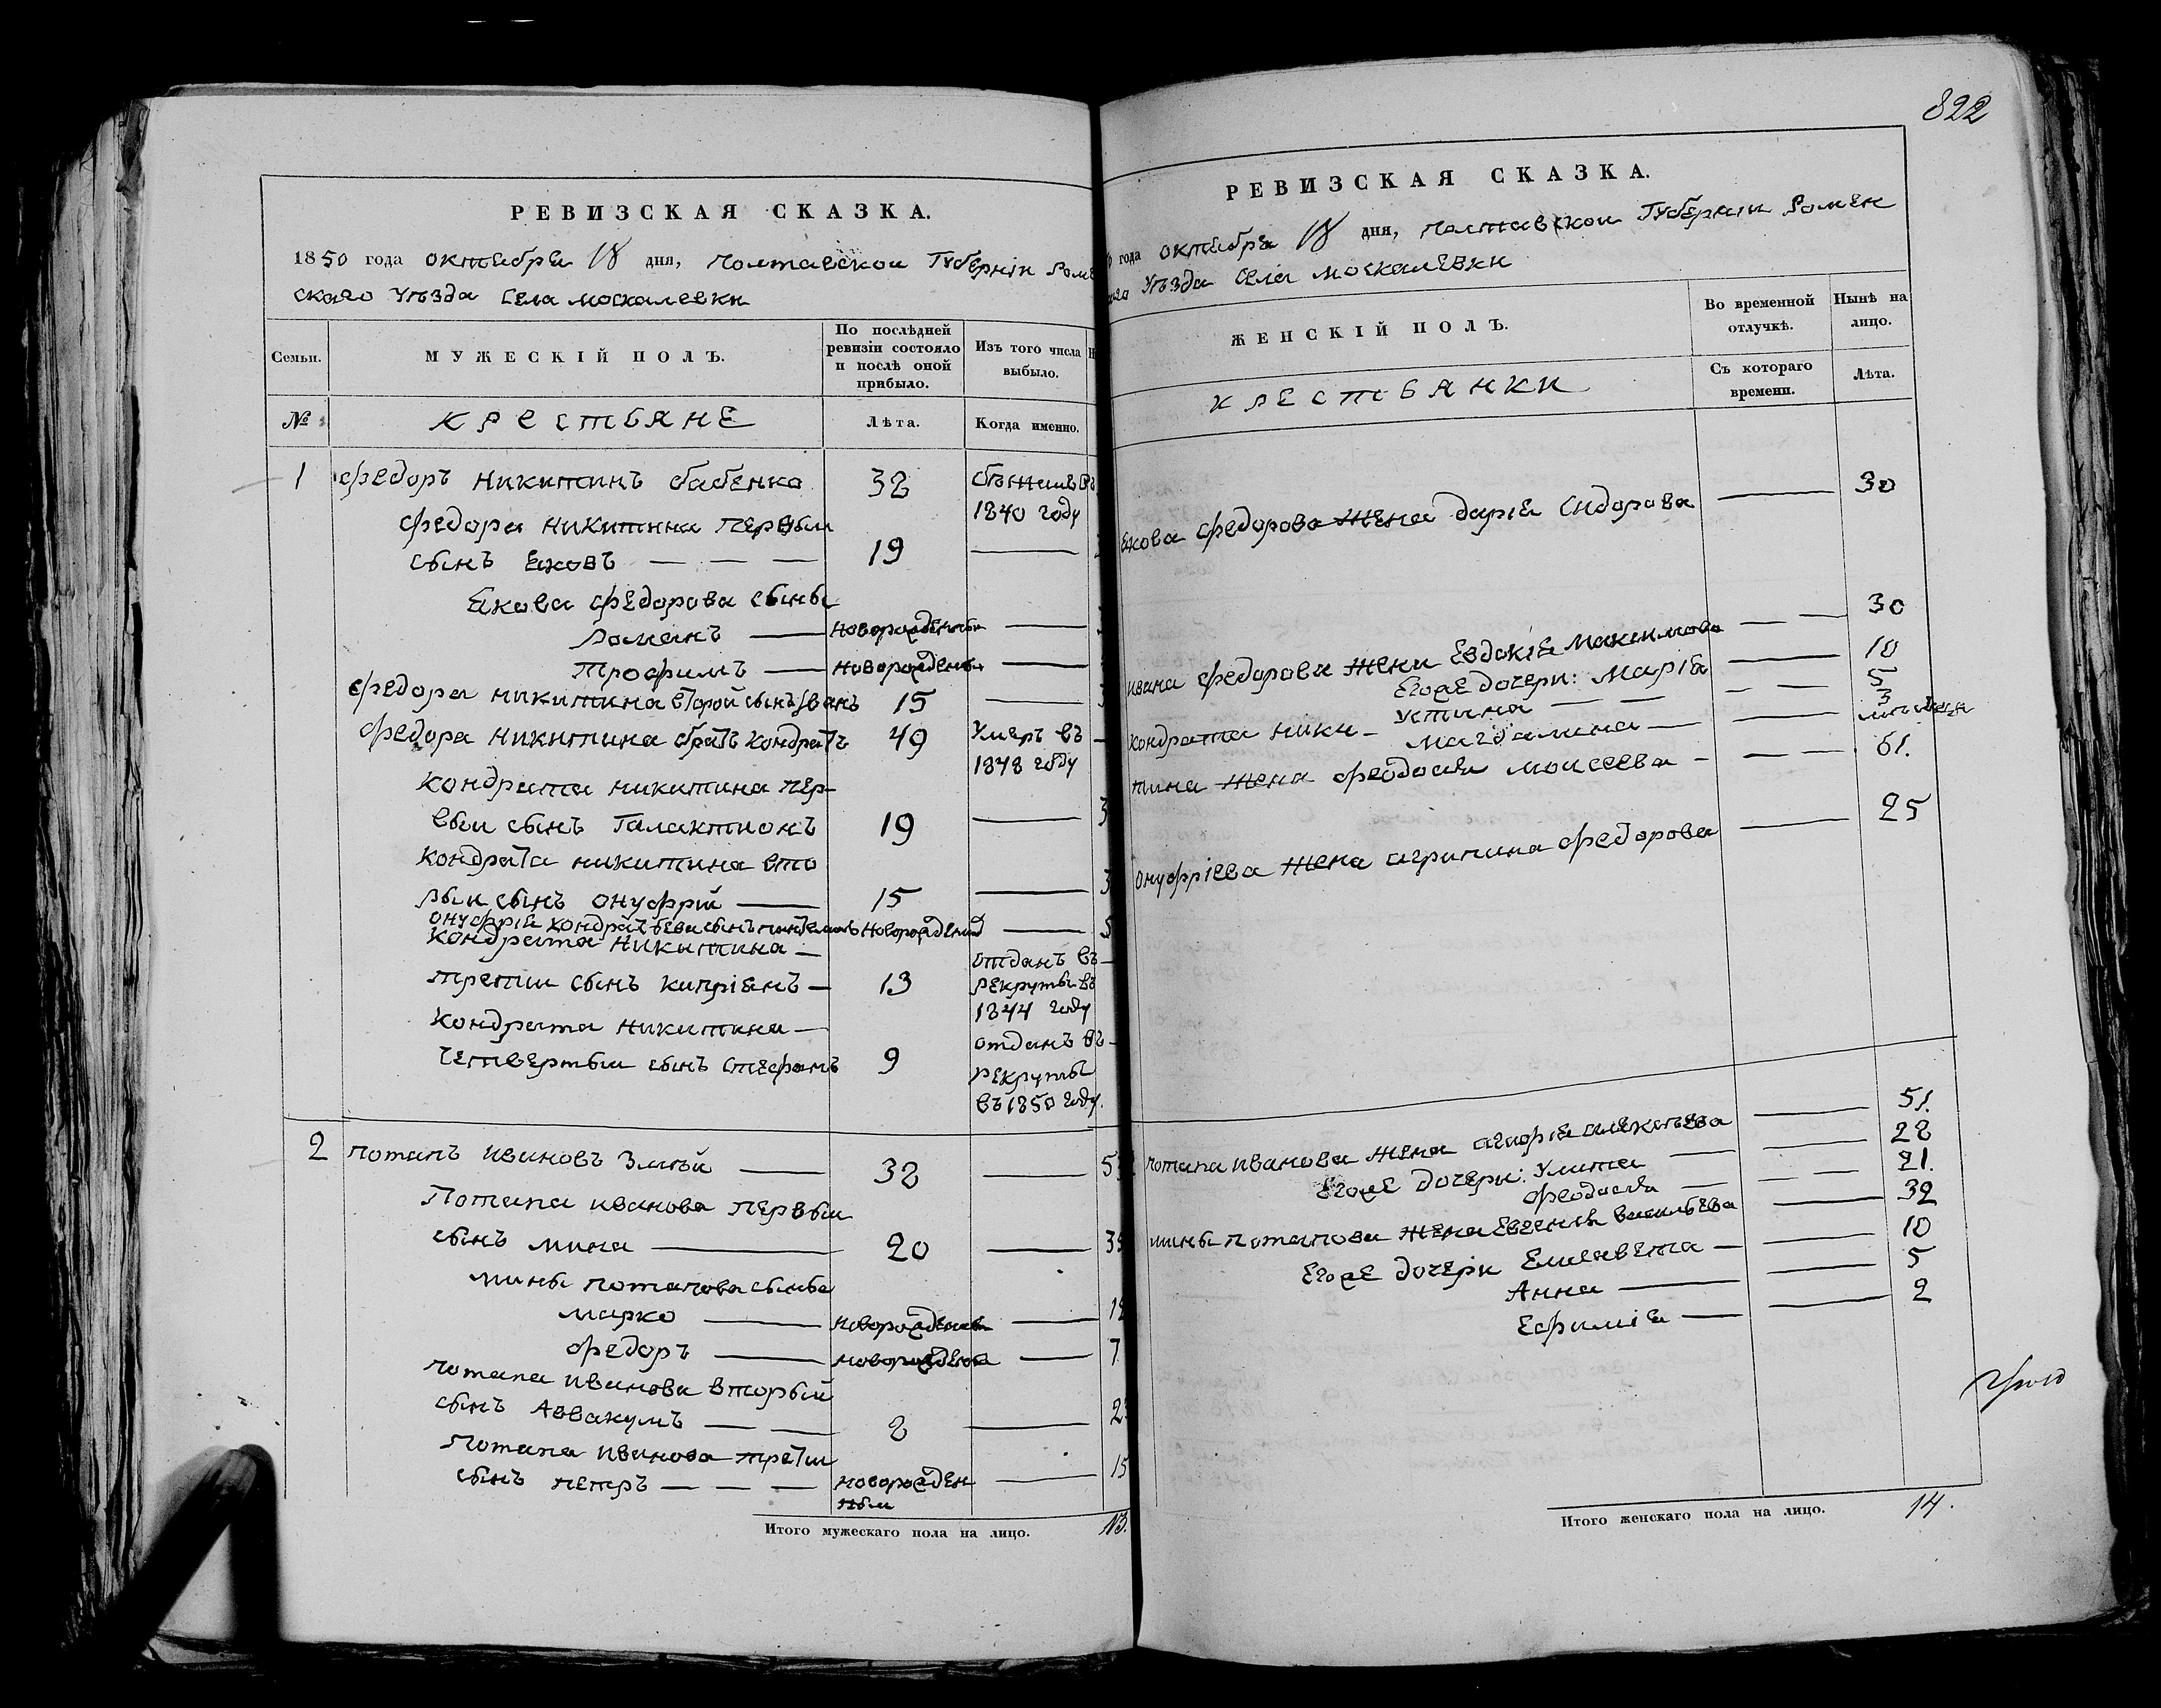 РЕВИЗСКАЯ СКАЗКА.
1850 года октебря 18 дня, полтавскои Губерніи Роме
скаго Уѣзда Села москалевки
Семьи.
МУЖЕСКІЙ ПОЛЪ.
По послѣдней
ревизіи состояло
и послѣ оной
прибыло.
Изъ того числа
выбыло.
№
КРЕСТЬЯНЕ
Лѣта.
Когда именно.
1 Федоръ Никитинъ бабенко 32
1840 году
Федора Никитина Первыи
сынъ Ековъ — — — 19
Екова Федорова сыны
Романъ — новорожденныи
Трофимъ — новорожденъ
Федора никитина второй сынъ Іванъ 15
Федора Никитина братъ Кондратъ 49 Умеръ въ
1848 году
Кондрата никитина пер-
выи сынъ Галактионъ 19
Кондрата никитина вто
рыи сынъ онуфрій — 15
онуфрій Кондратьева сынъ новорожденный
Кондрата Никитина —
третіи сынъ Кипріенъ — 13 отданъ въ
рекруты въ
1844 году
Кондрата Никитина —
Четвертыи сынъ Стефанъ 9 отданъ въ
рекруты
въ 1850 году.
2 потапъ Ивановъ Змѣй — 32
Потапа иванова первыи
сынъ мина — 20
мины потапова сыны
марко — новорожденъ
федоръ — новорожденъ 7
потапа иванова вторый
сынъ Аввакумъ — — 2
Потапа Иванова третіи
сынъ петръ — — — новорожден 15
ныи
Итого мужескаго пола на лицо. 13.
822
РЕВИЗСКАЯ СКАЗКА.
года октебря 18 дня, полтавскои Губерніи Ромен
Уѣзда Села москалевки
ЖЕНСКІЙ ПОЛЪ.
Во временной
отлучкѣ.
Нынѣ на
лицо.
КРЕСТЬЯНКИ
Съ котораго
времени.
Лѣта.
Екова Федорова Жена Даріе Сидорова — 30
ивана Федорова Жена Евдокіе Максимова — — 30
Егоже дочери: Маріе — 10
Устина — — 5
магдалина — 3
Кондрата Ники-
тина Жена феодосіе моисеева — — — 61.
Онуфріева Жена агрипина федорова — 25
потапа иванова Жена — 51.
Егоже дочери: Улита — 28
феодосіе — — 21.
мины потапова Жена Евгеніе васильева — 32
Егоже дочери Елисавета — 10
Анна — 5
Ефиміе — 2
Итого женскаго пола на лицо. 14.